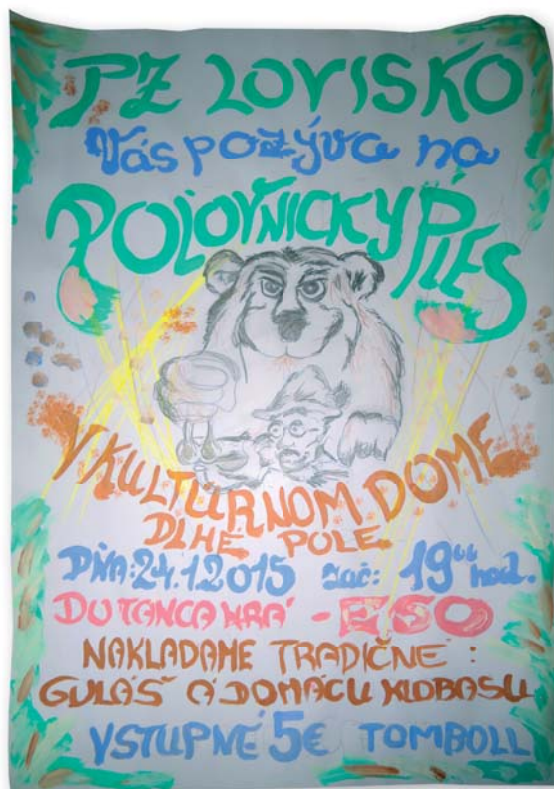 PZ LOVISKO
Vás pozýva na
POĽOVNICKY PLES
V KULTÚRNOM DOME
DLHE POLE
DŇA: 24.1.2015 zač: 19⁰⁰ hod.
DO TANCA HRÁ - ESO
NAKLADAME TRADIČNE :
GULÁŠ A DOMÁCU KLOBASU
VSTUPNÉ 5€ TOMBOLL